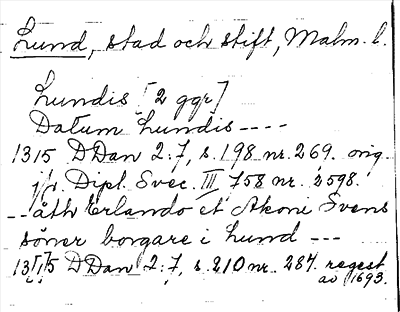 Lund, stad och stift, Malm. l.
Lundis [2 ggr]
Datum Lundis ----
1315 DDan 2:7, s. 198 nr. 269. orig.
jfr. Dipl. Svec. III, 758 nr. 2598.
-- åth Erlando et Akoni Svens
söner borgare i Lund ---
1315 DDan 2:7, s. 210 nr. 287. regest
av 1693.